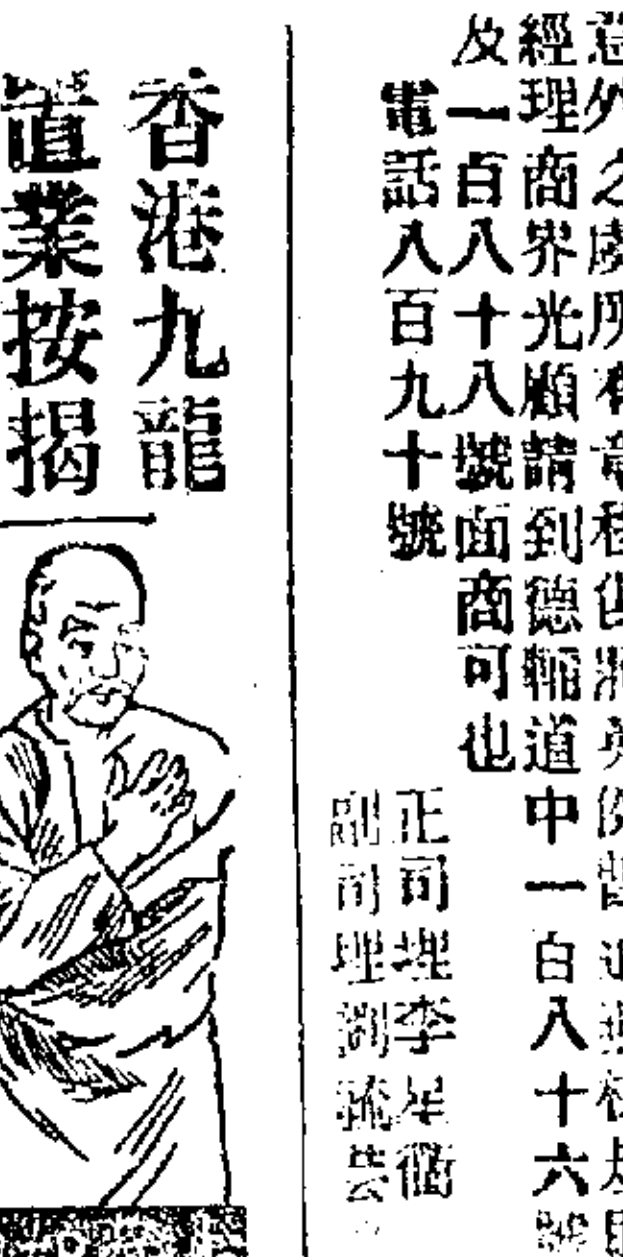 經理商界光顧請到德輔道中一百八十六號
及一百八十八號面商可也
電話八百九十號
正司理李星衢
副司理劉毓芸
香港九龍
置業按揭